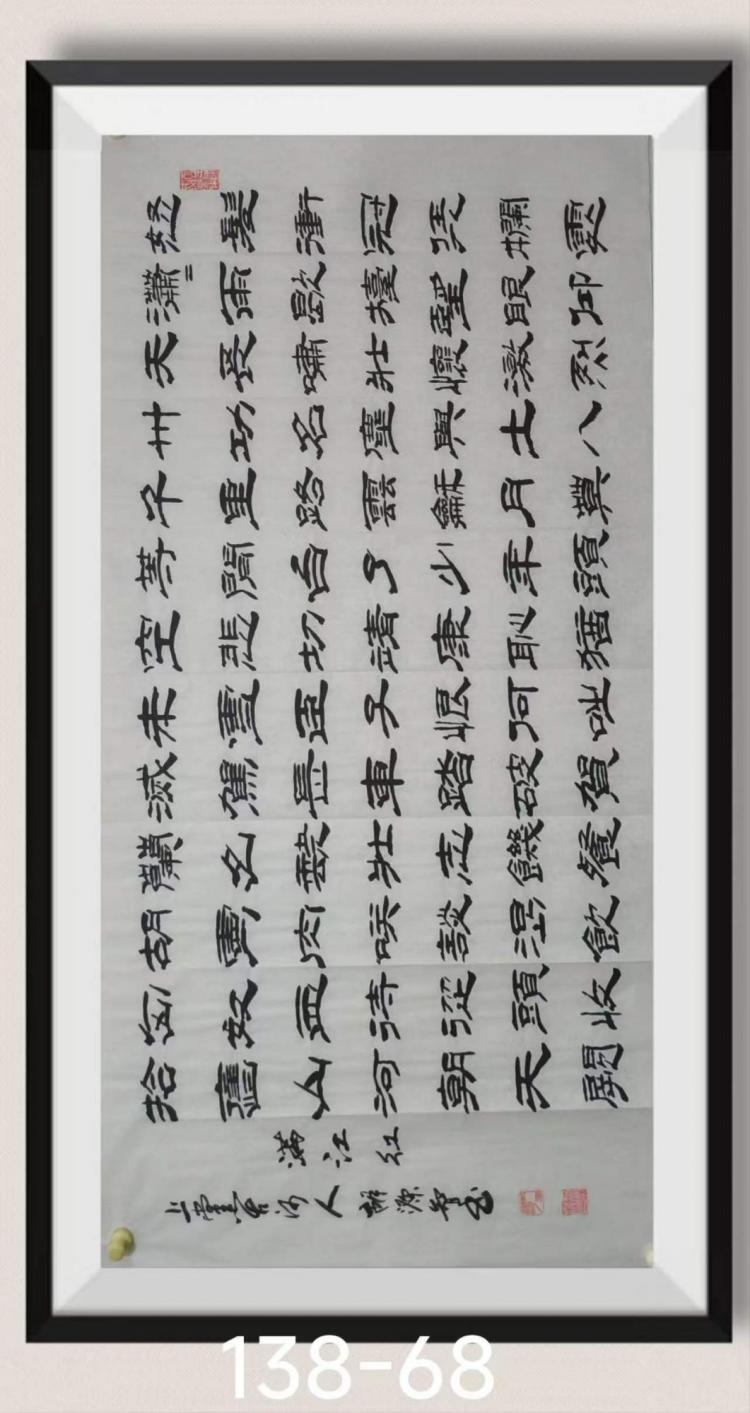 怒髮衝冠凭闌處
瀟=雨歇擡望眼仰
天長嘯壯懷激烈
卅功名塵與土八
千里路雲和月莫
等閒白了少年頭
空悲切靖康恥猶
未雪臣子恨何時
滅駕長車踏破賀
蘭山缺壯志饑餐
胡虜肉笑談渴飲
匈奴血待從頭收
拾舊山河朝天闕
滿江紅
上黨河人源智書
138-68